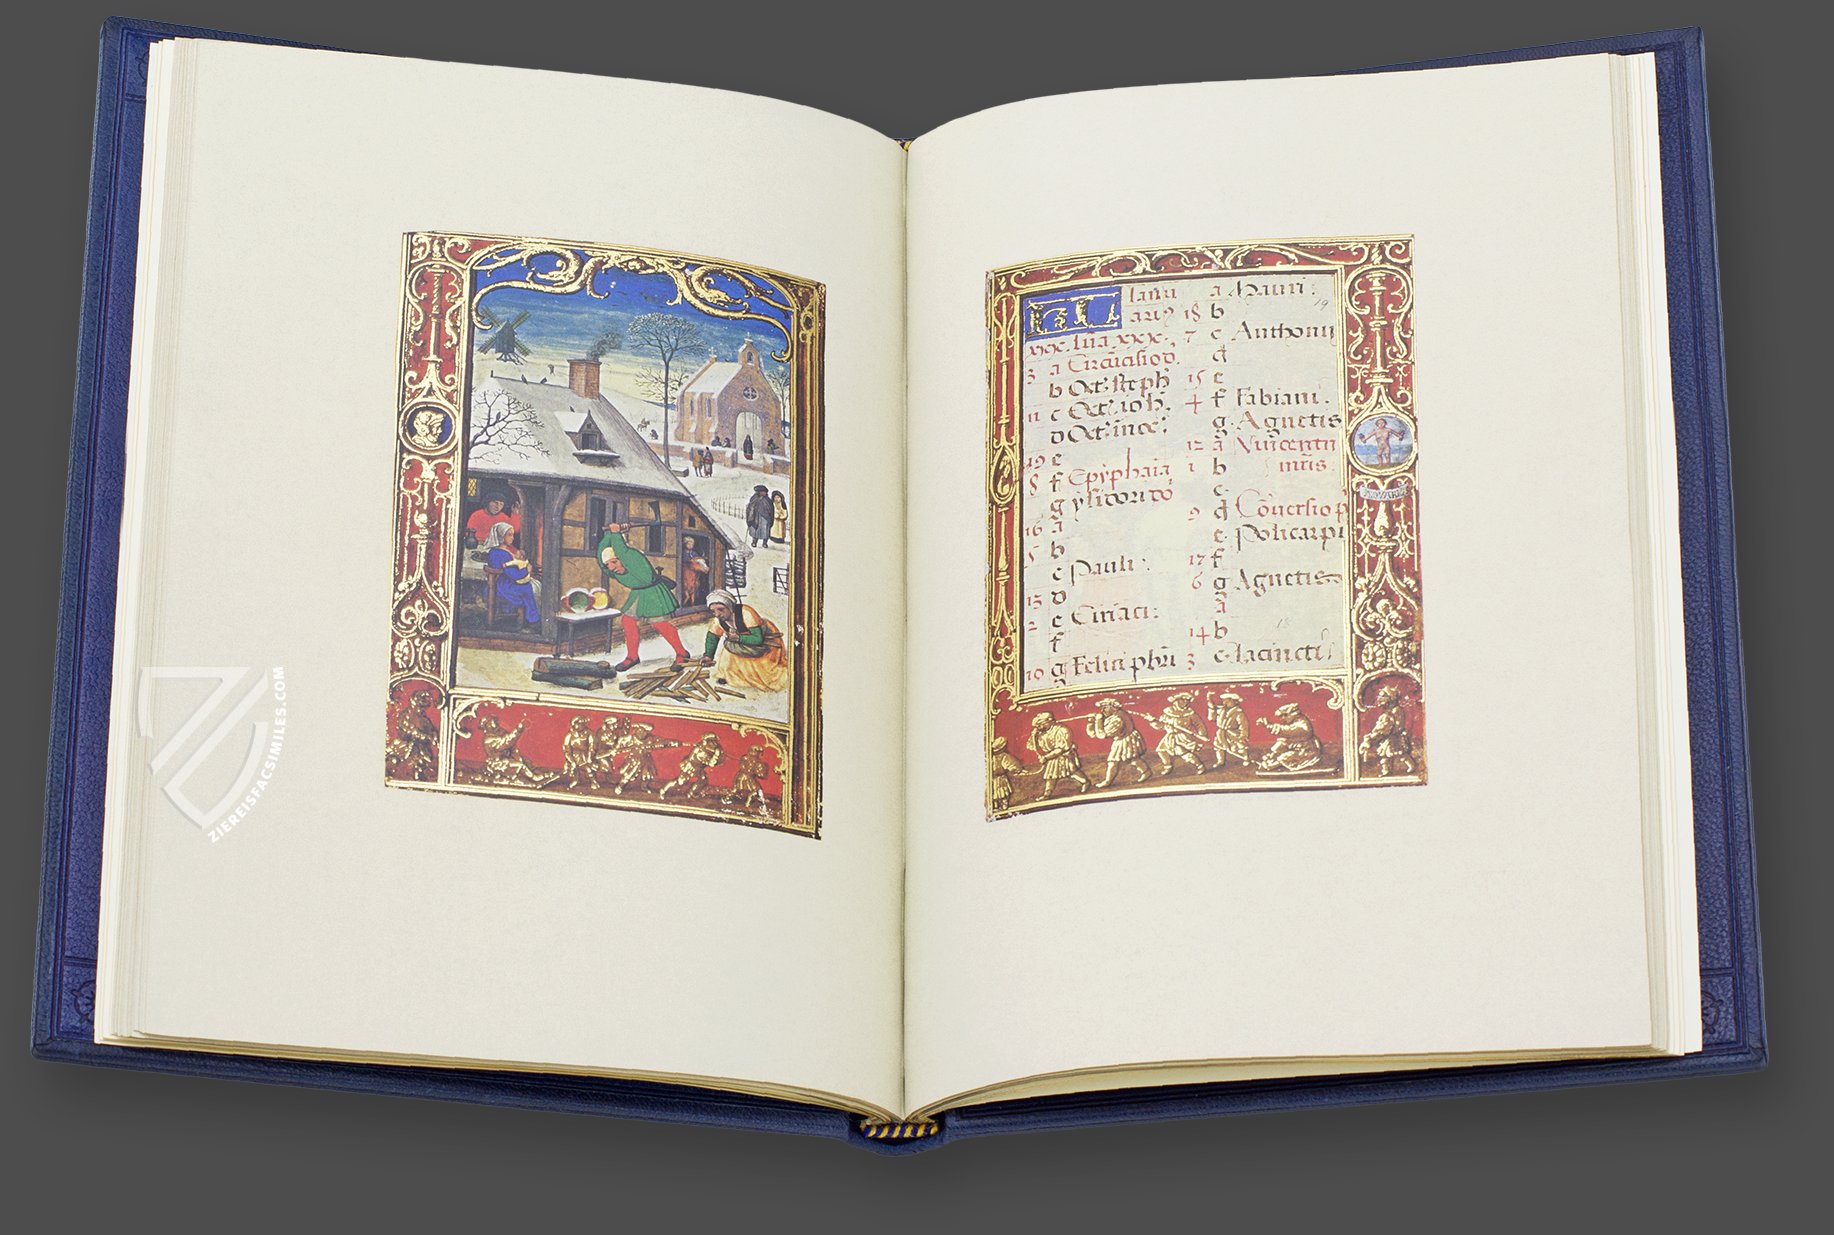 ZIEREISFACSIMILES.COM
KL Ianu
ariꝰ
xxx. lūa xxx.
3 a Circūcisio d.
b Oct. steph
11 c Oct. ioh.
d Oct. inoc.
19 e
8 f Epyphaīa
g ysidori
16 a
5 b
c Pauli.
13 d
2 e Ciriaci:
f
10 g Felici
a Mauri:
19
18 b
7 c Anthonii
d
15 e
4 f Fabiani.
g Agnetis
12 a Vincentii
1 b mris.
c
9 d Cōuersio p
e Policarpi
17 f
6 g Agnetis
a
18
14 b
3 c